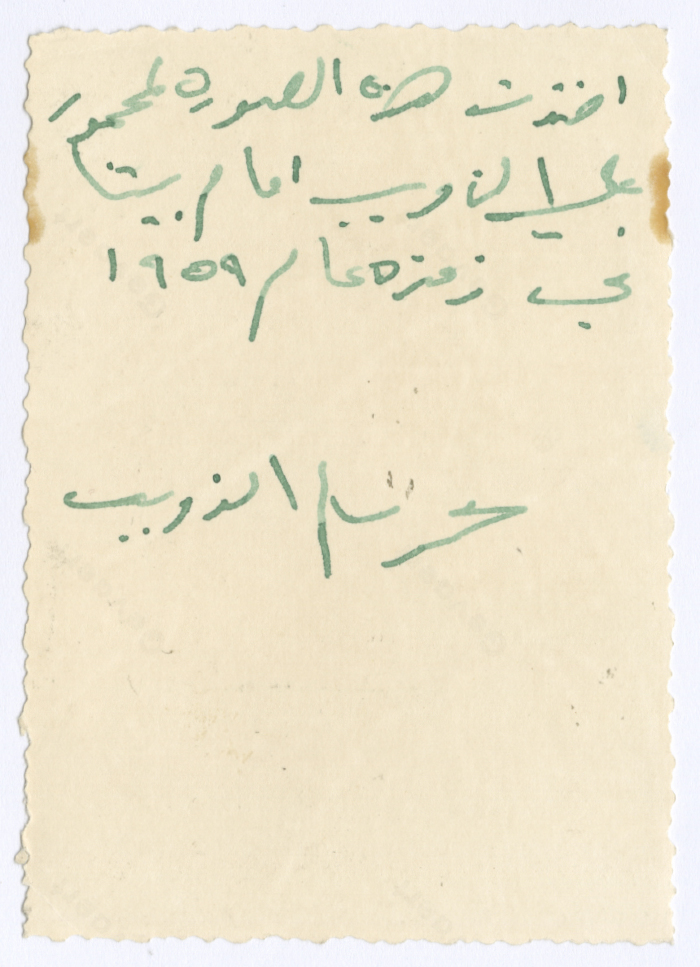 اخذت هذه الصوره لمحمود
علي الذويب امام بيتنا
في زعزه عام ١٩٥٩
حسام الذويب